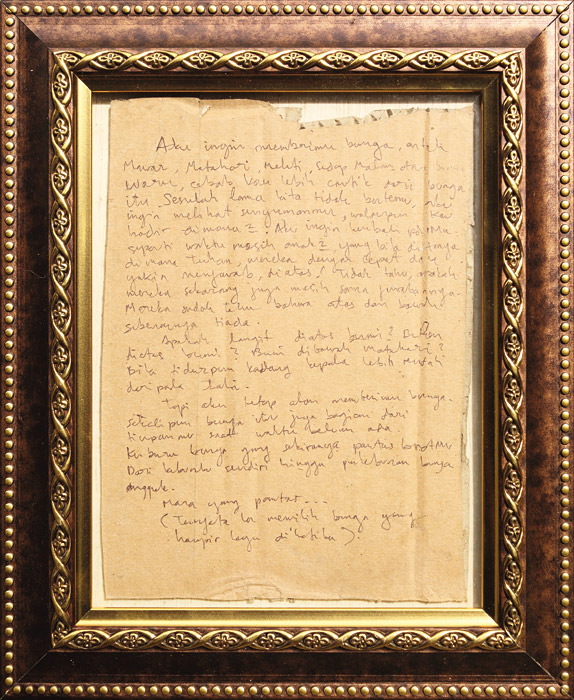 Aku ingin memberimu bunga, anta
Mawar, Matahari, Melati, Sedap Malam dan
Warur, sebab kau lebih cantik dari bunga
itu. Sesudah lama kita tidak bertemu, aku
ingin melihat senyumanmu, walaupun kau
hadir dimana2. Aku ingin kembali
seperti waktu masih anak2 yang bila ditanya
dimana Tuhan, mereka dengan cepat dan
yakin menjawab, diatas! Tidak tahu, apakah
mereka sekarang juga masih sama jawabannya.
Mereka sudah tahu bahwa atas dan bawah
sebenarnya tiada.
Apakah langit diatas bumi? Bulan
diatas bumi? Bumi dibawah Matahari?
Bila tidurpun kadang kepala lebih rendah
dari pada kaki.
Tapi aku tetap akan memberimu bunga.
sekalipun bunga itu juga bagian dari
saat waktu belum ada
Kuburu bunga yang sekiranya pantas
Dari kebunku sendiri hingga perkebunan bunga
anggrek.
Mana yang pantas...
(Ternyata kau memilih bunga yang
hampir layu di hatiku).